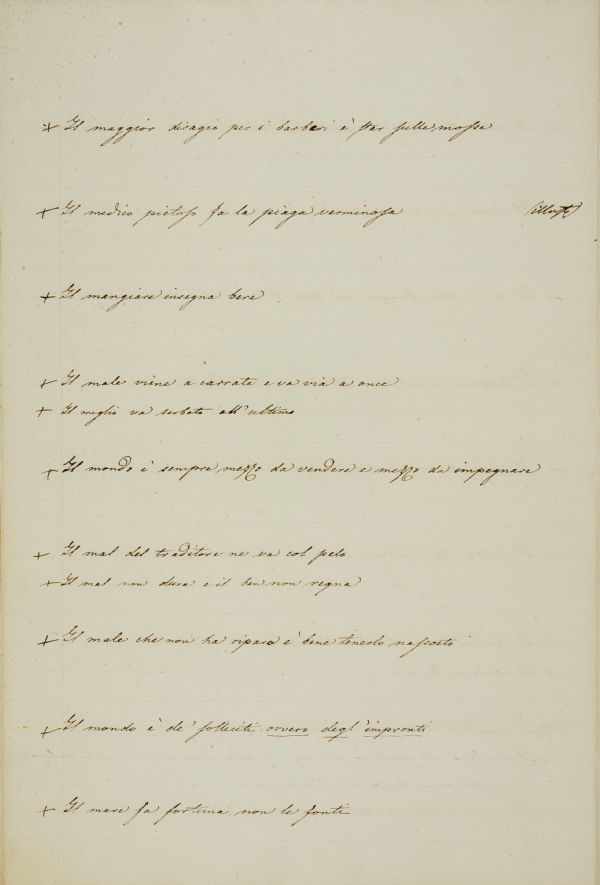 + Il maggior disagio per i barberi è star sulle mosse
+ Il medico pietoso fa la piaga verminosa (illust.)
+ Il mangiare insegna bere
+ Il male viene a carrate e va via a once
+ Il meglio va serbato all'ultimo
+ Il mondo è sempre mezzo da vendere e mezzo da impegnare
+ Il mal del traditore ne va col pelo
+ Il mal non dura e il ben non regna
+ Il male che non ha riparo è bene tenerlo nascosto
+ Il mondo è de' solleciti ovvero degl'impronti
+ Il mare fa fortuna, non le fonti